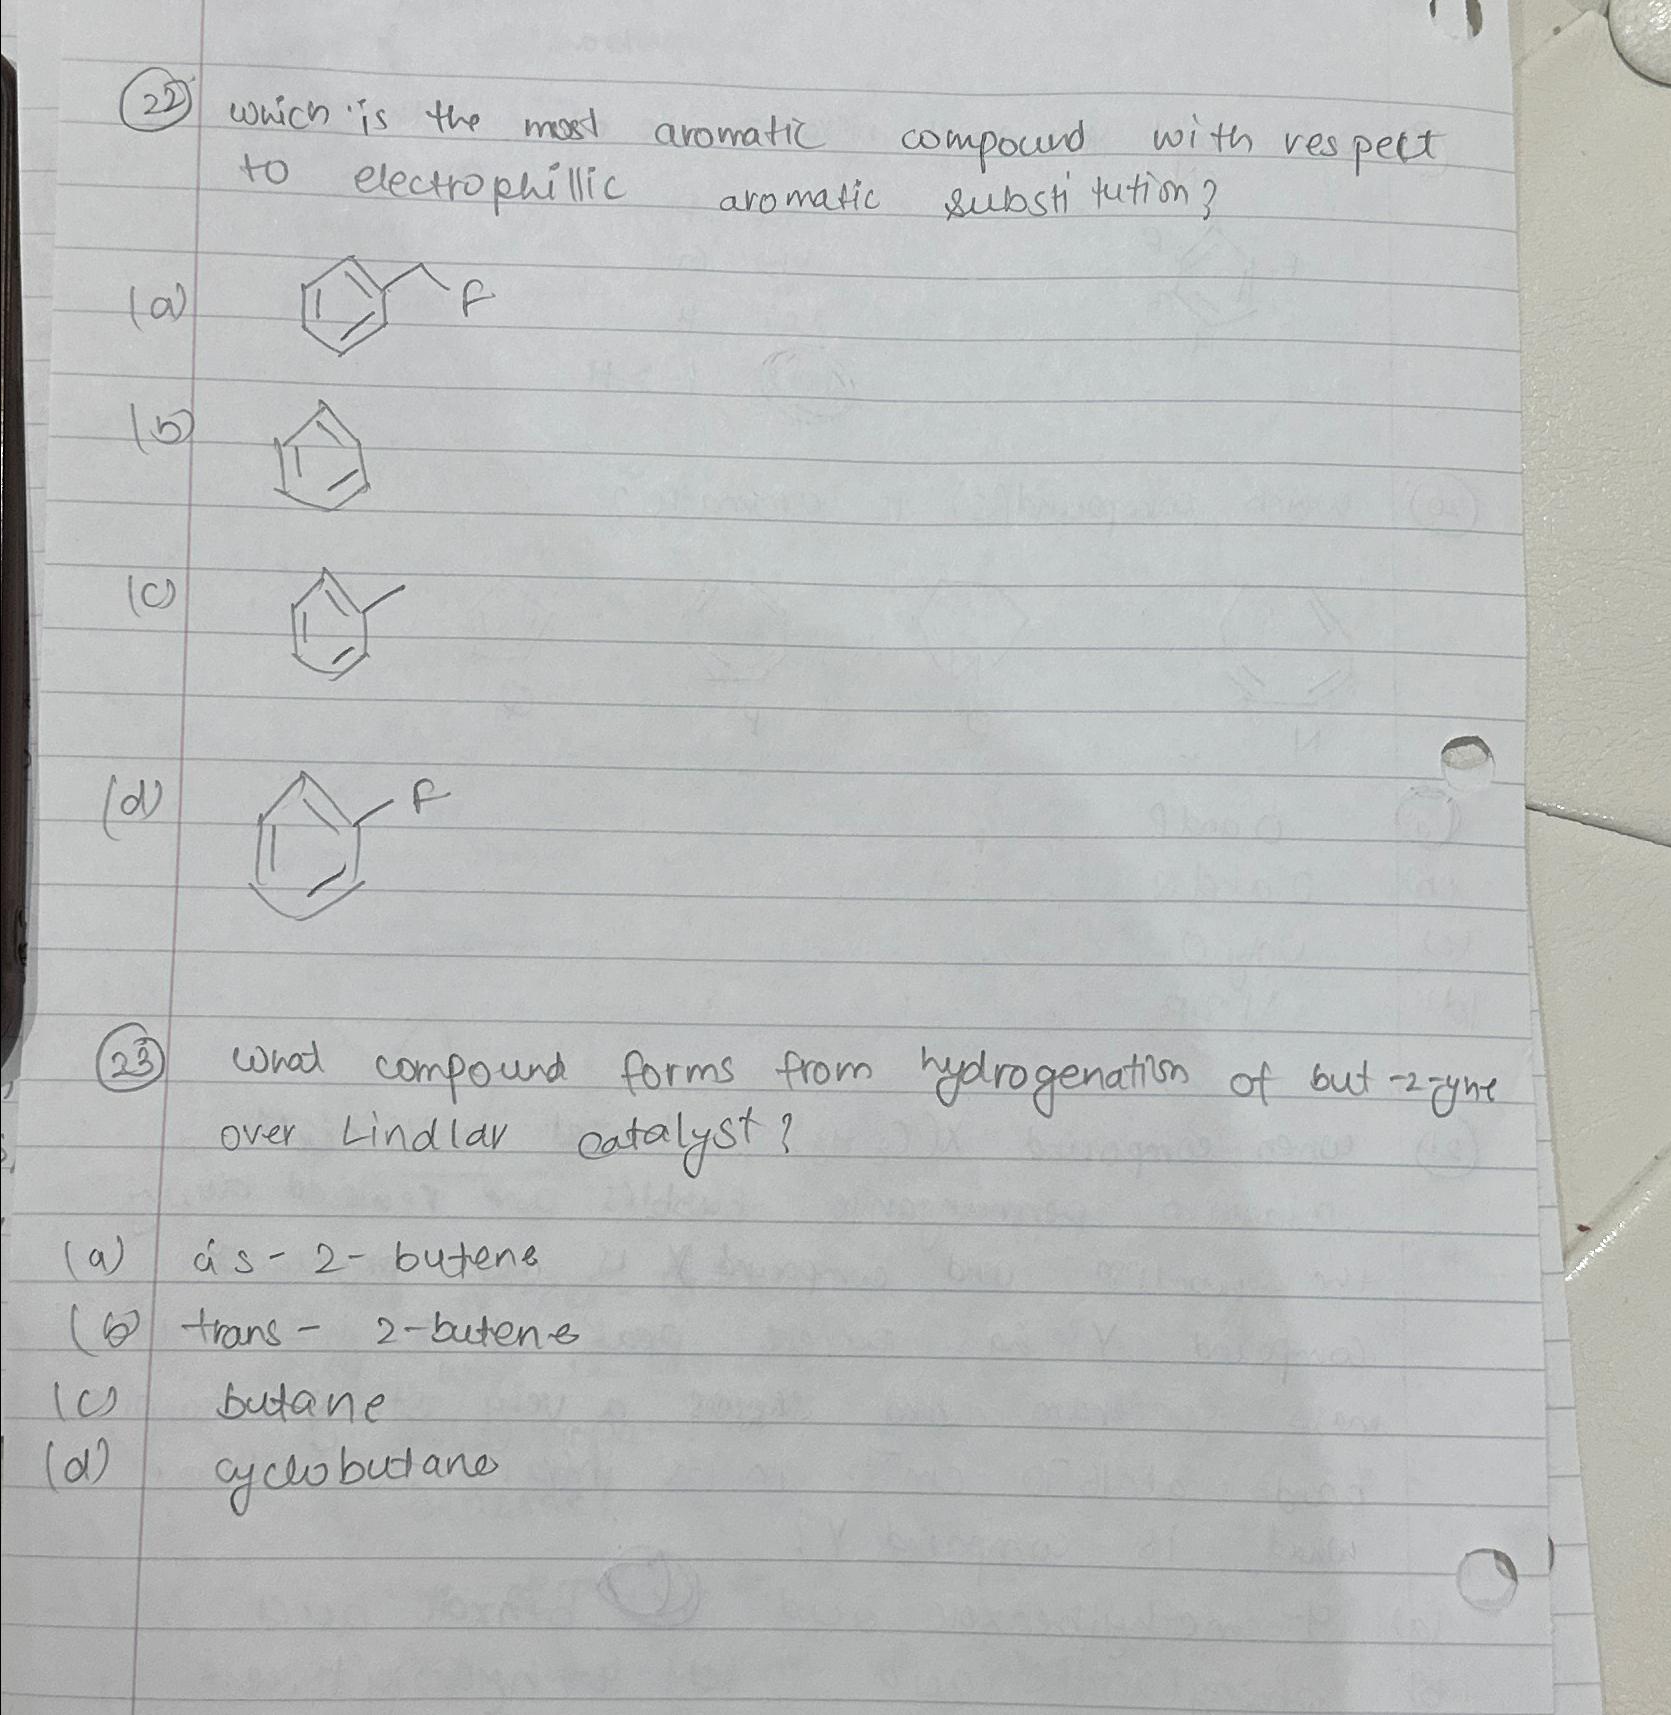 22 which is the most aromatic compound with respect
to electrophillic aromatic substitution?
(a) F
(b)
(c)
(d) F
23 what compound forms from hydrogenation of but-2-yne
over Lindlar catalyst?
(a) cis-2-butene
(b) trans-2-butene
(c) butane
(d) cyclobutane